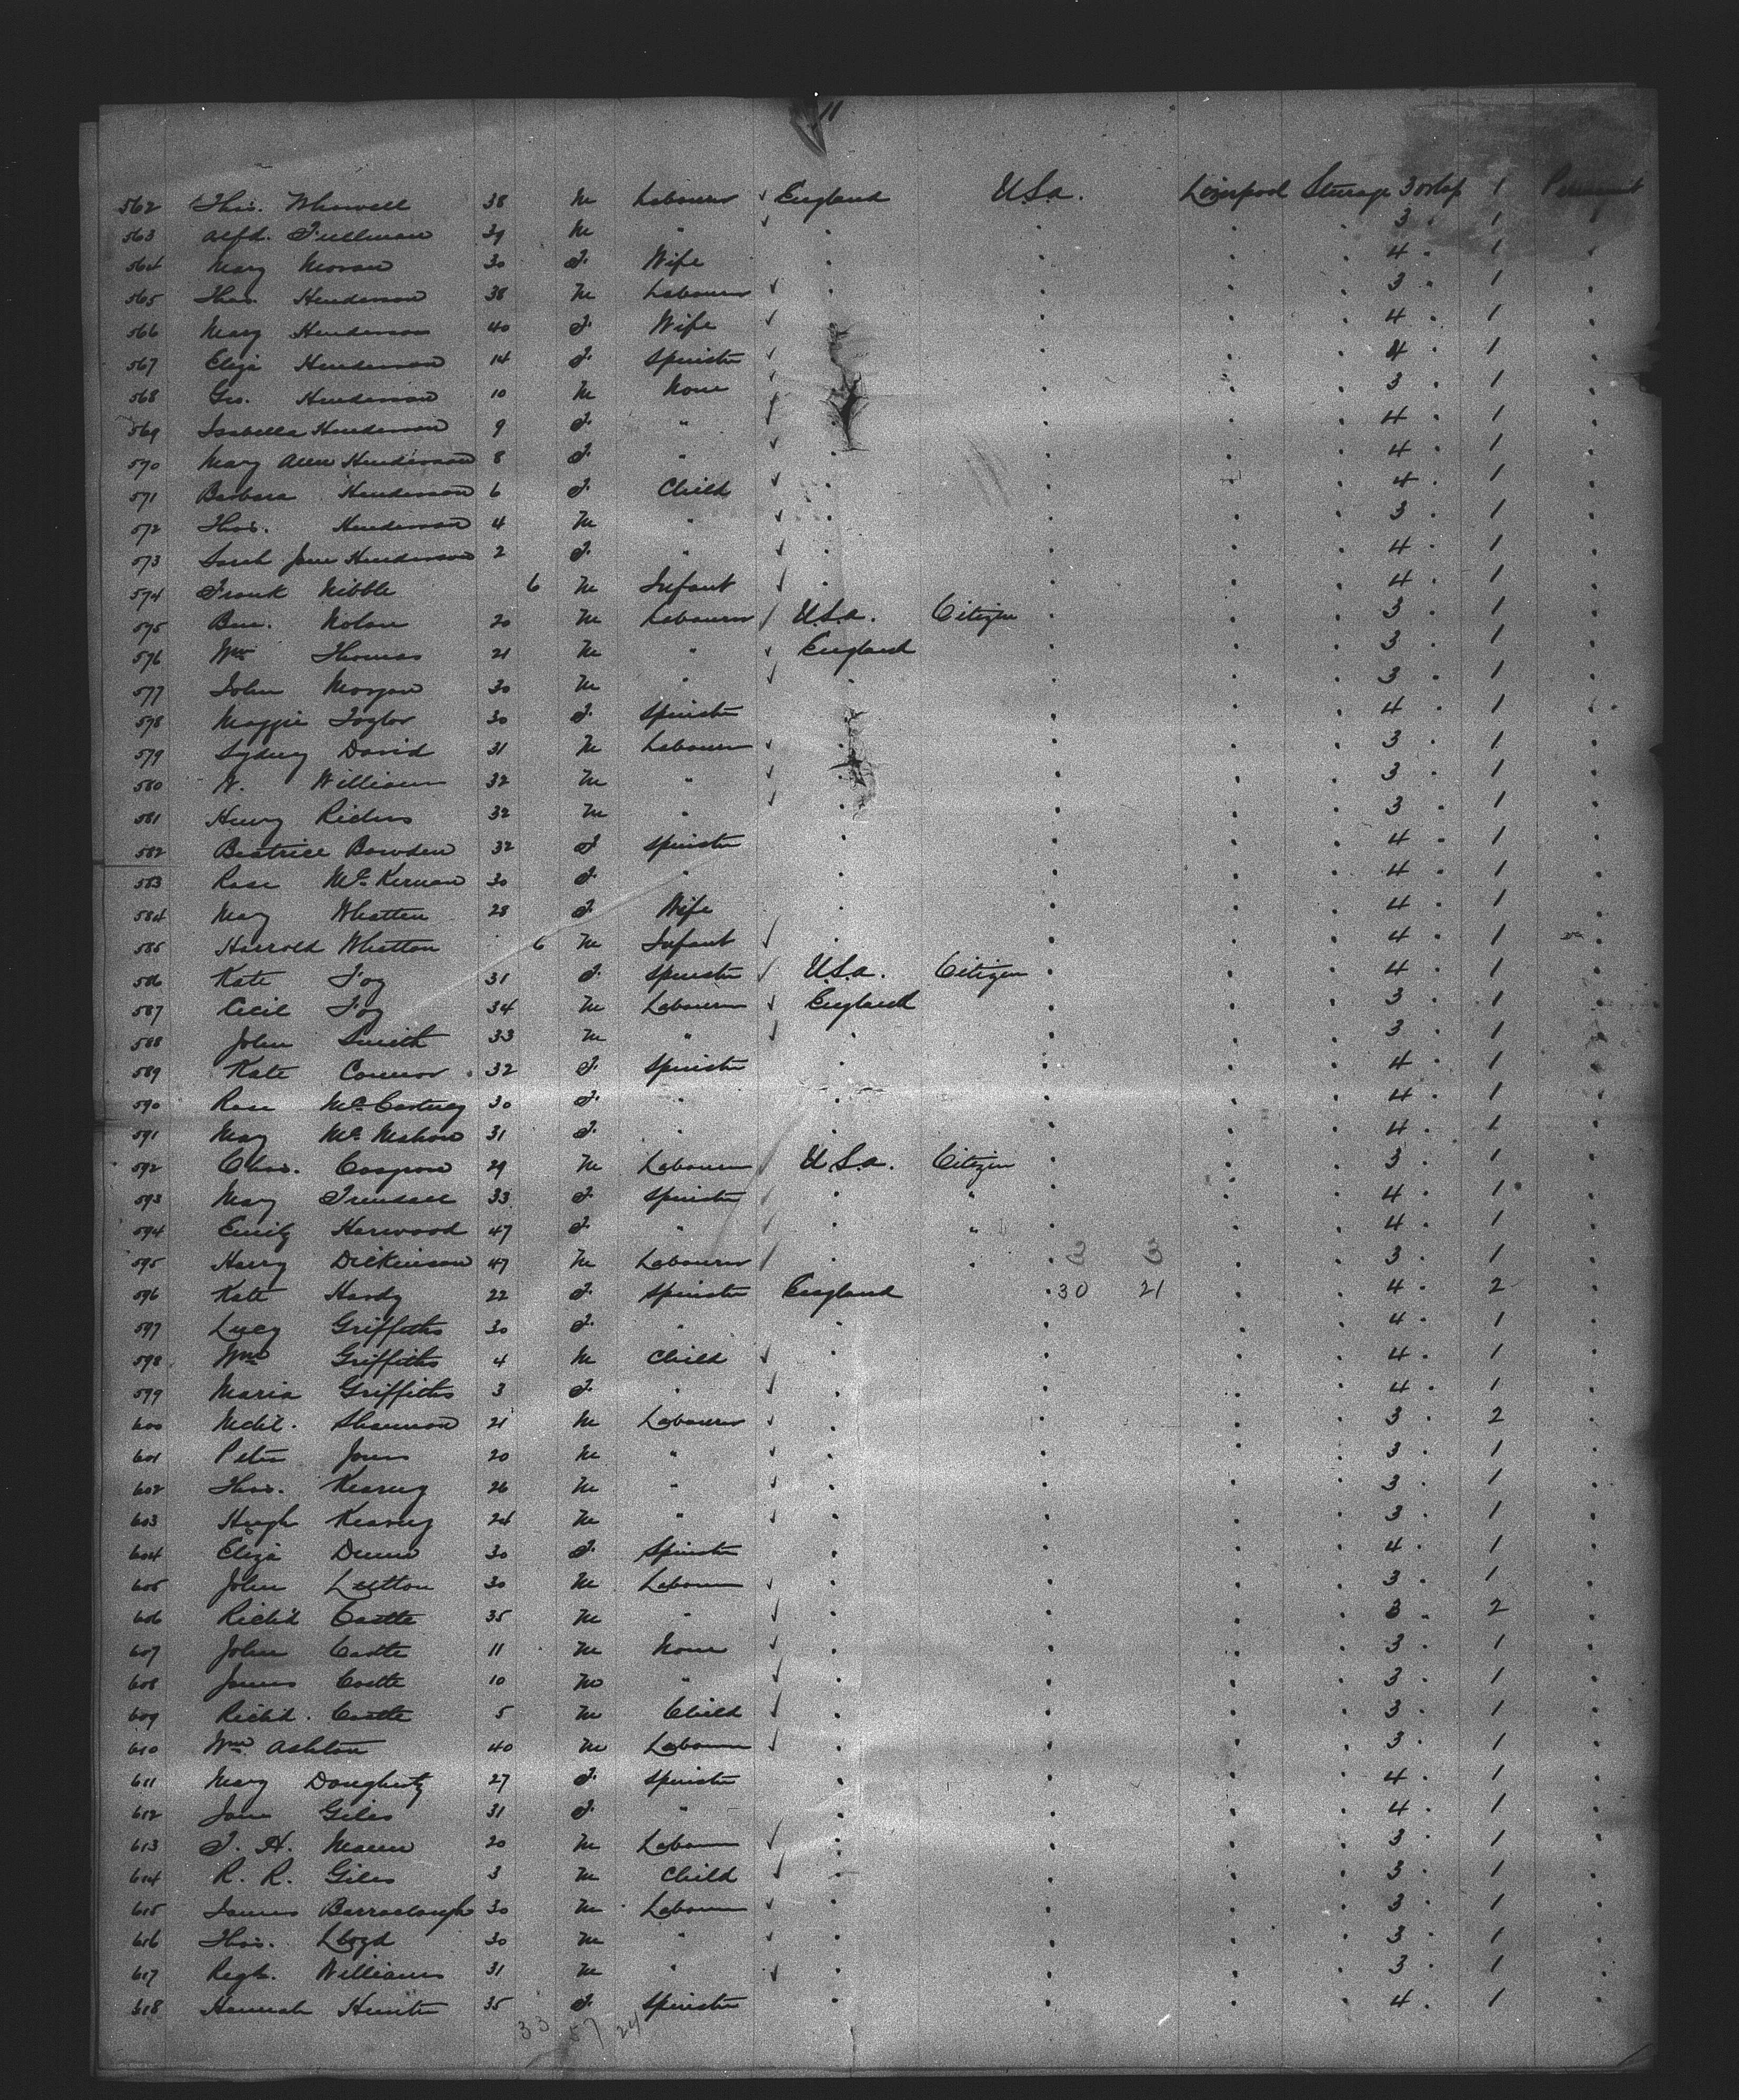 11
562 Thos. Whowell 38 M Labourer ✓ England U.S.a. Liverpool Steerage 3 orlop 1
563 Alfd. Fullman 39 M " ✓ . . . . 3 . 1 .
564 Mary Moran 30 F. Wife . . . . 4 . 1 .
565 Thos. Henderson 38 M Labourer ✓ . . . . 3 " 1 .
566 Mary Henderson 40 F. Wife ✓ . . . . 4 . 1 .
567 Eliza Henderson 14 F. Spinster ✓ . . . . 4 . 1 .
568 Geo. Henderson 10 M None ✓ . . . . 3 . 1 .
569 Isabella Henderson 9 F. " ✓ . . . . 4 . 1 .
570 Mary Ann Henderson 8 F. " ✓ . . . . 4 . 1 .
571 Barbara Henderson 6 F. Child ✓ . . . . 4 . 1 .
572 Thos. Henderson 4 M " ✓ . . . . 3 . 1 .
573 Sarah Jane Henderson 2 F. " ✓ . . . . 4 . 1 .
574 Frank Kibble 6 M Infant ✓ . . . . 4 . 1 .
575 Nolan 20 M Labourer ✓ U.S.a. Citizen . . . 3 . 1 .
576 Wm Thomas 21 M " ✓ England . . . 3 . 1 .
577 John Morgan 30 M " ✓ . . . . 3 . 1 .
578 Maggie Taylor 30 F. Spinster . . . . 4 . 1 .
579 Sydney David 31 M Labourer ✓ . . . . 3 . 1 .
580 Williams 32 M " ✓ . . . . 3 . 1 .
581 Henry 32 M " ✓ . . . . 3 . 1 .
582 Beatrice Bowden 32 F Spinster . . . . 4 . 1 .
583 Rose McKernan 30 F. " . . . . 4 . 1 .
584 May Whatton 28 F. Wife . . . . 4 . 1 .
585 Harrold Whatton 6 M Infant ✓ . . . . 4 . 1 .
586 Kate Foy 31 F. Spinster ✓ U.S.a. Citizen . . . 4 . 1 .
587 Cecil Foy 34 M Labourer ✓ England . . . 3 . 1 .
588 John Smith 33 M " ✓ . . . . 3 . 1 .
589 Kate Connor 32 F. Spinster . . . . 4 . 1 .
590 Rose McCartney 30 F. " . . . . 4 . 1 .
591 May McMahon 31 F. " . . . . 4 . 1 .
592 Chas. Cosgrove 29 M Labourer ✓ U.S.a. Citizen . . . 3 . 1 .
593 May 33 F. Spinster ✓ . " . . . 4 . 1 .
594 Emily Harwood 47 F. " ✓ . " . . . 4 . 1 .
595 Harry Dickinson 47 M Labourer ✓ . " . 3 3 . . 3 . 1 .
596 Kate Hardy 22 F. Spinster England . 30 21 . . 4 . 2 .
597 Lucy Griffiths 30 F. " . . . . 4 . 1 .
598 Wm Griffiths 4 M Child ✓ . . . . 4 . 1 .
599 Maria Griffiths 3 F. " ✓ . . . . 4 . 1 .
600 Michl. Shannon 21 M Labourer ✓ . . . . 3 . 2 .
601 Peter Jones 20 M " ✓ . . . . 3 . 1 .
602 Thos. Kearney 26 M " ✓ . . . . 3 . 1 .
603 Hugh Kearney 24 M " ✓ . . . . 3 . 1 .
604 Eliza Dunn 30 F. Spinster . . . . 4 . 1 .
605 John Lutton 30 M Labourer ✓ . . . . 3 . 1 .
606 Richd Castle 35 M " ✓ . . . . 3 . 2 .
607 John Castle 11 M None ✓ . . . . 3 . 1 .
608 James Castle 10 M " ✓ . . . . 3 . 1 .
609 Richd. Castle 5 M Child ✓ . . . . 3 . 1 .
610 Wm Ashton 40 M Labourer ✓ . . . . 3 . 1 .
611 Mary Dougherty 27 F. Spinster . . . . 4 . 1 .
612 Jane Giles 31 F. " . . . . 4 . 1 .
613 J. H. Mann 20 M Labourer ✓ . . . . 3 . 1 .
614 R. R. Giles 3 M Child ✓ . . . . 3 . 1 .
615 James Barraclough 30 M Labourer ✓ . . . . 3 . 1 .
616 Thos. Lloyd 30 M " ✓ . . . . 3 . 1 .
617 Regh. Williams 31 M " ✓ . . . . 3 . 1 .
618 Hannah Hunter 35 F. Spinster . . . . 4 . 1 .
33 57 24